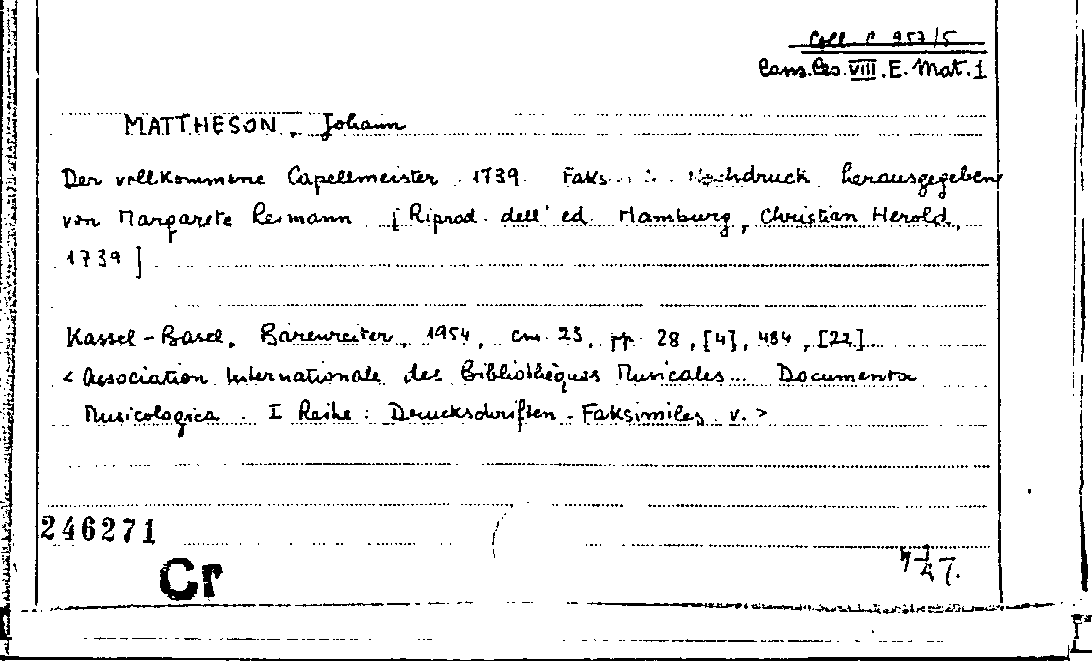 Coll. C 957/5
Cons. Les. VIII. E. Mat. 1
MATTHESON, Johann
Der vollkommene Capellmeister 1739. Faks Nachdruck herausgegeben
von Margarete Reimann [Riprod. dell' ed. Hamburg, Christian Herold,
1739]
Kassel-Basel, Bärenreiter, 1954, cm. 23, pp. 28, [4], 484, [22]
< Association Internationale des Bibliothèques Musicales... Documenta
Musicologica. I Reihe: Druckschriften-Faksimiles, v. >
246271
Cr